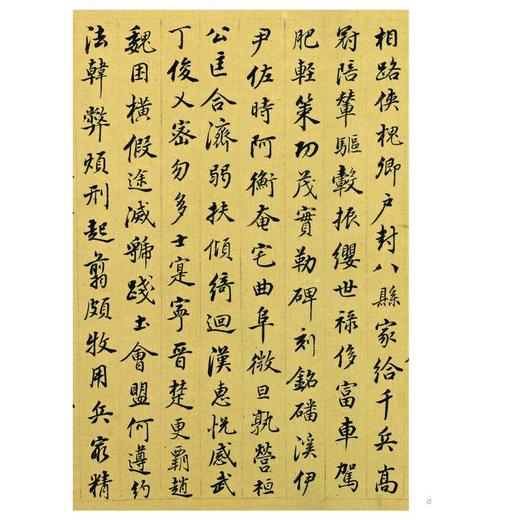 相路俠槐卿户封八縣家給千兵高
冠陪輦驅轂振纓世禄侈富車駕
肥輕策功茂實勒碑刻銘磻溪伊
尹佐時阿衡奄宅曲阜微旦孰營桓
公匡合濟弱扶傾綺迴漢惠悦感武
丁俊乂密勿多士寔寧晉楚更覇趙
魏困橫假途滅虢踐土會盟何遵約
法韓弊煩刑起翦頗牧用兵最精